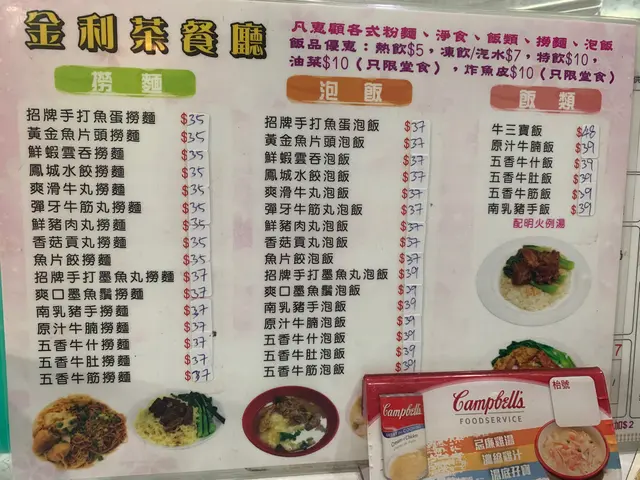 金利茶餐廳
凡惠顧各式粉麵、淨食、飯類、撈麵、泡飯
飯品優惠：熱飲$5，凍飲/汽水$7，特飲$10，
油菜$10（只限堂食），炸魚皮$10（只限堂食）
撈麵
招牌手打魚蛋撈麵 $35
黃金魚片頭撈麵 $35
鮮蝦雲吞撈麵 $35
鳳城水餃撈麵 $35
爽滑牛丸撈麵 $35
彈牙牛筋丸撈麵 $35
鮮豬肉丸撈麵 $35
香菇貢丸撈麵 $35
魚片餃撈麵 $35
招牌手打墨魚丸撈麵 $37
爽口墨魚鬚撈麵 $37
南乳豬手撈麵 $37
原汁牛腩撈麵 $37
五香牛什撈麵 $37
五香牛肚撈麵 $37
五香牛筋撈麵 $37
泡飯
招牌手打魚蛋泡飯 $37
黃金魚片頭泡飯 $37
鮮蝦雲吞泡飯 $37
鳳城水餃泡飯 $37
爽滑牛丸泡飯 $37
彈牙牛筋丸泡飯 $37
鮮豬肉丸泡飯 $37
香菇貢丸泡飯 $37
魚片餃泡飯 $37
招牌手打墨魚丸泡飯 $39
爽口墨魚鬚泡飯 $39
南乳豬手泡飯 $39
原汁牛腩泡飯 $39
五香牛什泡飯 $39
五香牛肚泡飯 $39
五香牛筋泡飯 $39
飯類
牛三寶飯 $48
原汁牛腩飯 $39
五香牛什飯 $39
五香牛肚飯 $39
五香牛筋飯 $39
南乳豬手飯 $39
配明火例湯
Campbell's
FOODSERVICE
Campbell's
枱號